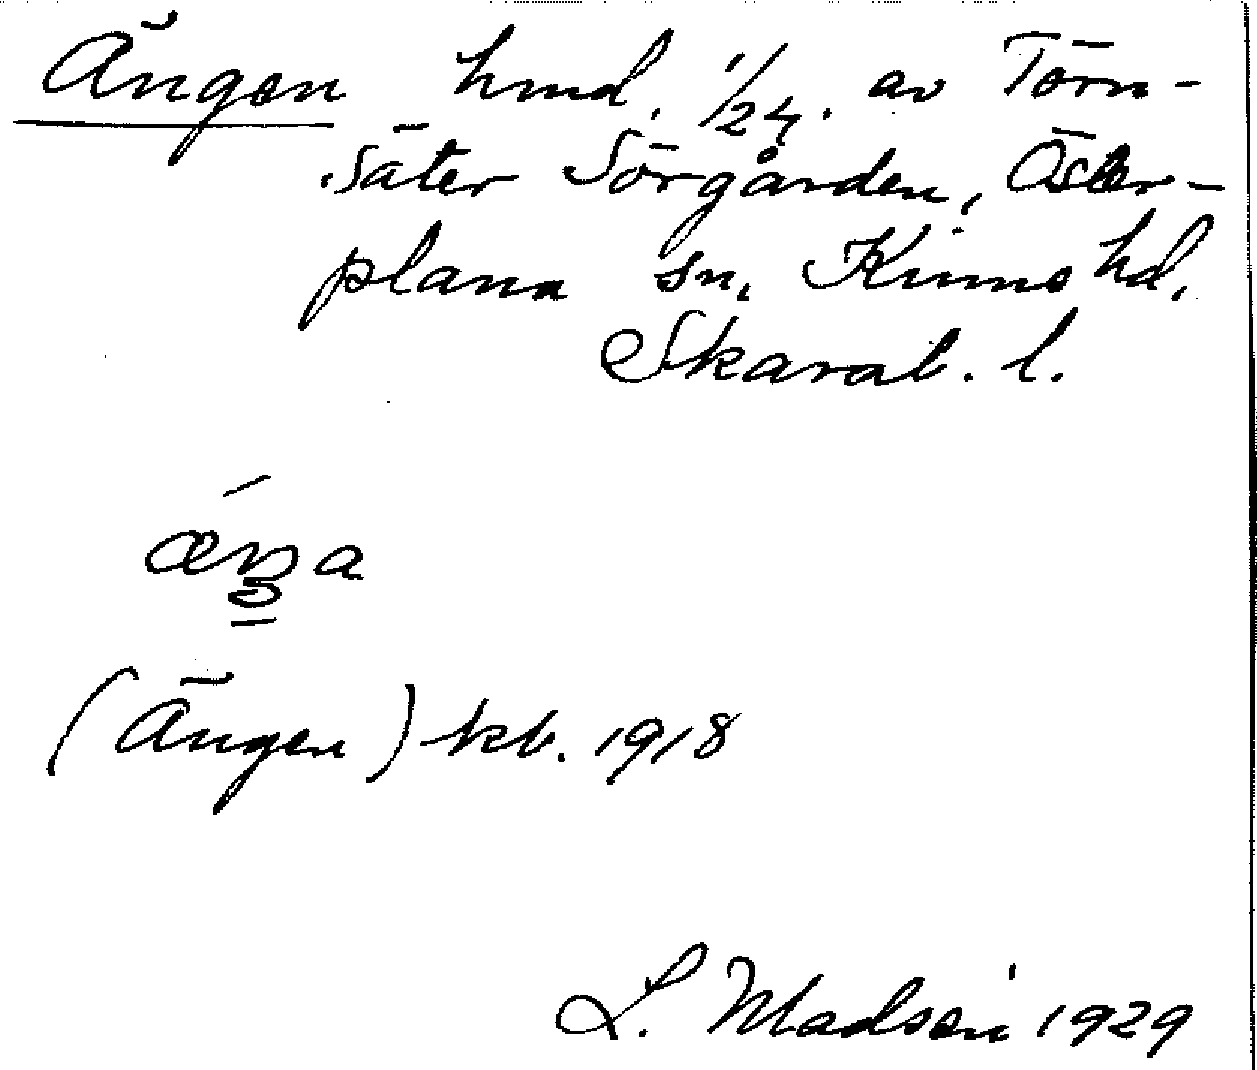 Ängen hmd. 1/24. av Törn-
säter Sörgården, Öster-
plana sn, Kinne hd,
Skarab. l.
æŋa
(Ängen) kb. 1918
L. Madsen 1929